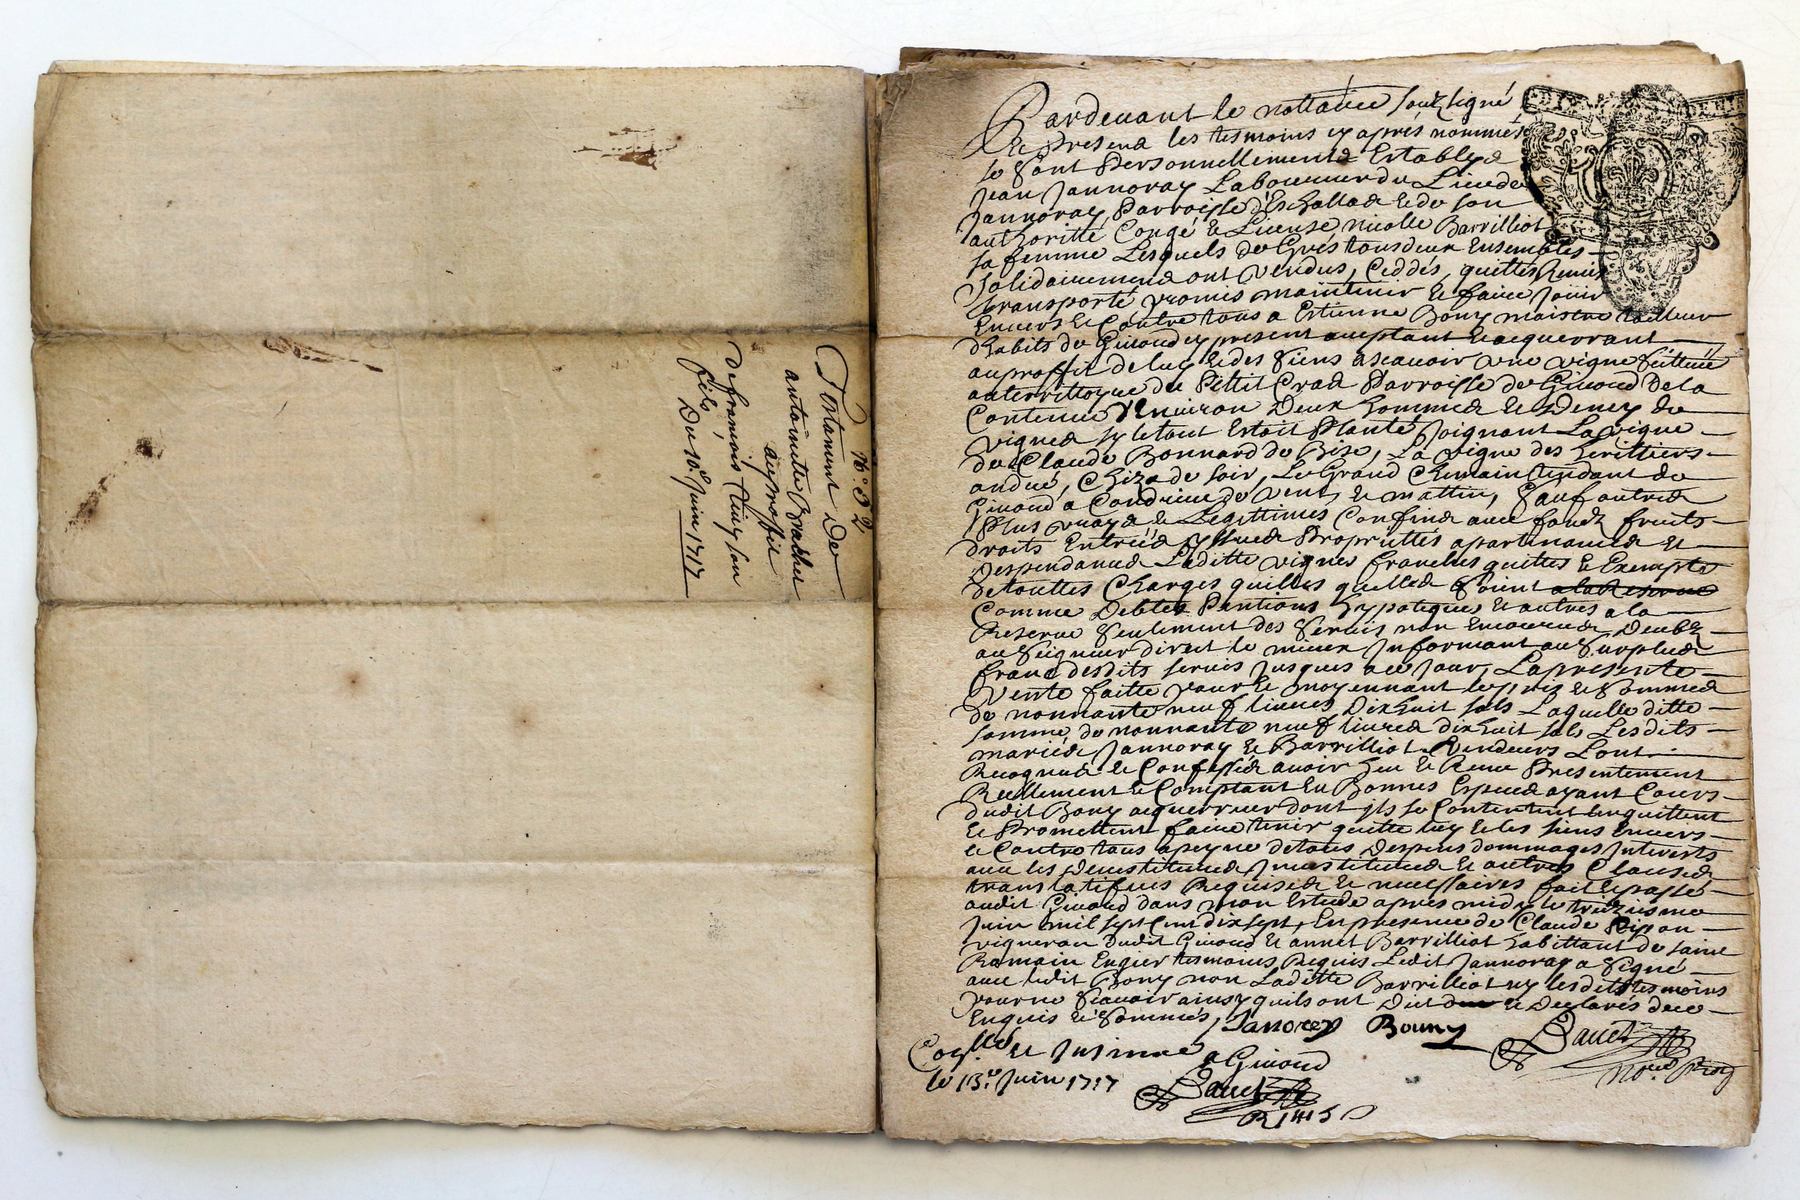 N.° 82
Testament de
antoinette Brachet
au proffit
de françois son
fils
Du 10.e Juin 1717
Pardevant le nottaire soubsigné
Et Presens les tesmoins cy après nommés
se sont Personnellements Establys
Jean Jannoray Laboureur du Lieu de
Jannoray Parroisse d'Eschallas & de son
authoritté Congé & License nicolle Barrilliot
sa femme Lesquels de Grés tous deux Ensembles
Solidairement ont Vendus, Ceddés, quittes Remis
transporté promis maintenir & faire Jouir
Envers & Contre tous a Estienne Bony maistre tailleur
d'habits de Givord cy présent acceptant & acquerrant
au proffit de luy & des Siens ascavoir une vigne scittuée
au territtoyre du Pettit Parroisse de Givord De la
Contenue D'Environ Deux hommées & demy de
vignes sy le tout Estoit Planté, Joignant La vigne
de Claude Bonnard de Bize, La vigne des herittiers
de soir, Le Grand Chemin tendant de
Givord a Condrieu de vent & mattin, Sauf autres
Plus vrays & Legittimes Confins avec fonds fruits
droits Entrées yssues Propriettes apartenances &
despendances Laditte vigne franches quittes & Exempte
de touttes Charges quelles quelles Soient a la Reserve
Comme Debtes Pentions hypoteques & autres a la
Reserve Seulement des Servis non Encourus Deubs
au Seigneur direct le mieux Informant au Surplus
franc desdits servis Jusques a ce Jour, La presente
Vente faitte pour & moyennant le prix & Somme
de nonnante neuf livres Dixhuit sols Laquelle ditte
somme de nonnante neuf livres dixhuit sols Lesdits
mariés Jannoray & Barrilliot Vendeurs L'ont
Recognus & Confessés avoir heu & Receu Presentement
Reellement & Comptant En Bonnes Especes ayant Cours
dudit Bony acquerreur dont Ils se Contentent l'enquittent
& Promettent faire tenir quitte luy & les siens Envers
& Contre tous a peyne de tous Despens dommages Interests
avec les devestitures Investitures & autres Clauses
translatifves Requises & necessaires fait & passé
audit Givord dans mon Estude apres midy le treizieme
Juin mil sept Cent dix sept, En presence de Claude
vigneron dudit Givord & annet Barrilliot habittant de saint
Romain En gier tesmoins Requis Ledit Jannoray a Signé
avec ledit Bony non Laditte Barrilliot ny lesdits tesmoins
pour ne Scavoir ainsy quils ont Dict & Declarés de ce
Enquis & Sommés, Janorey Bouny
Coll.é Et Insinué
a Givord
le 13.e Juin 1717